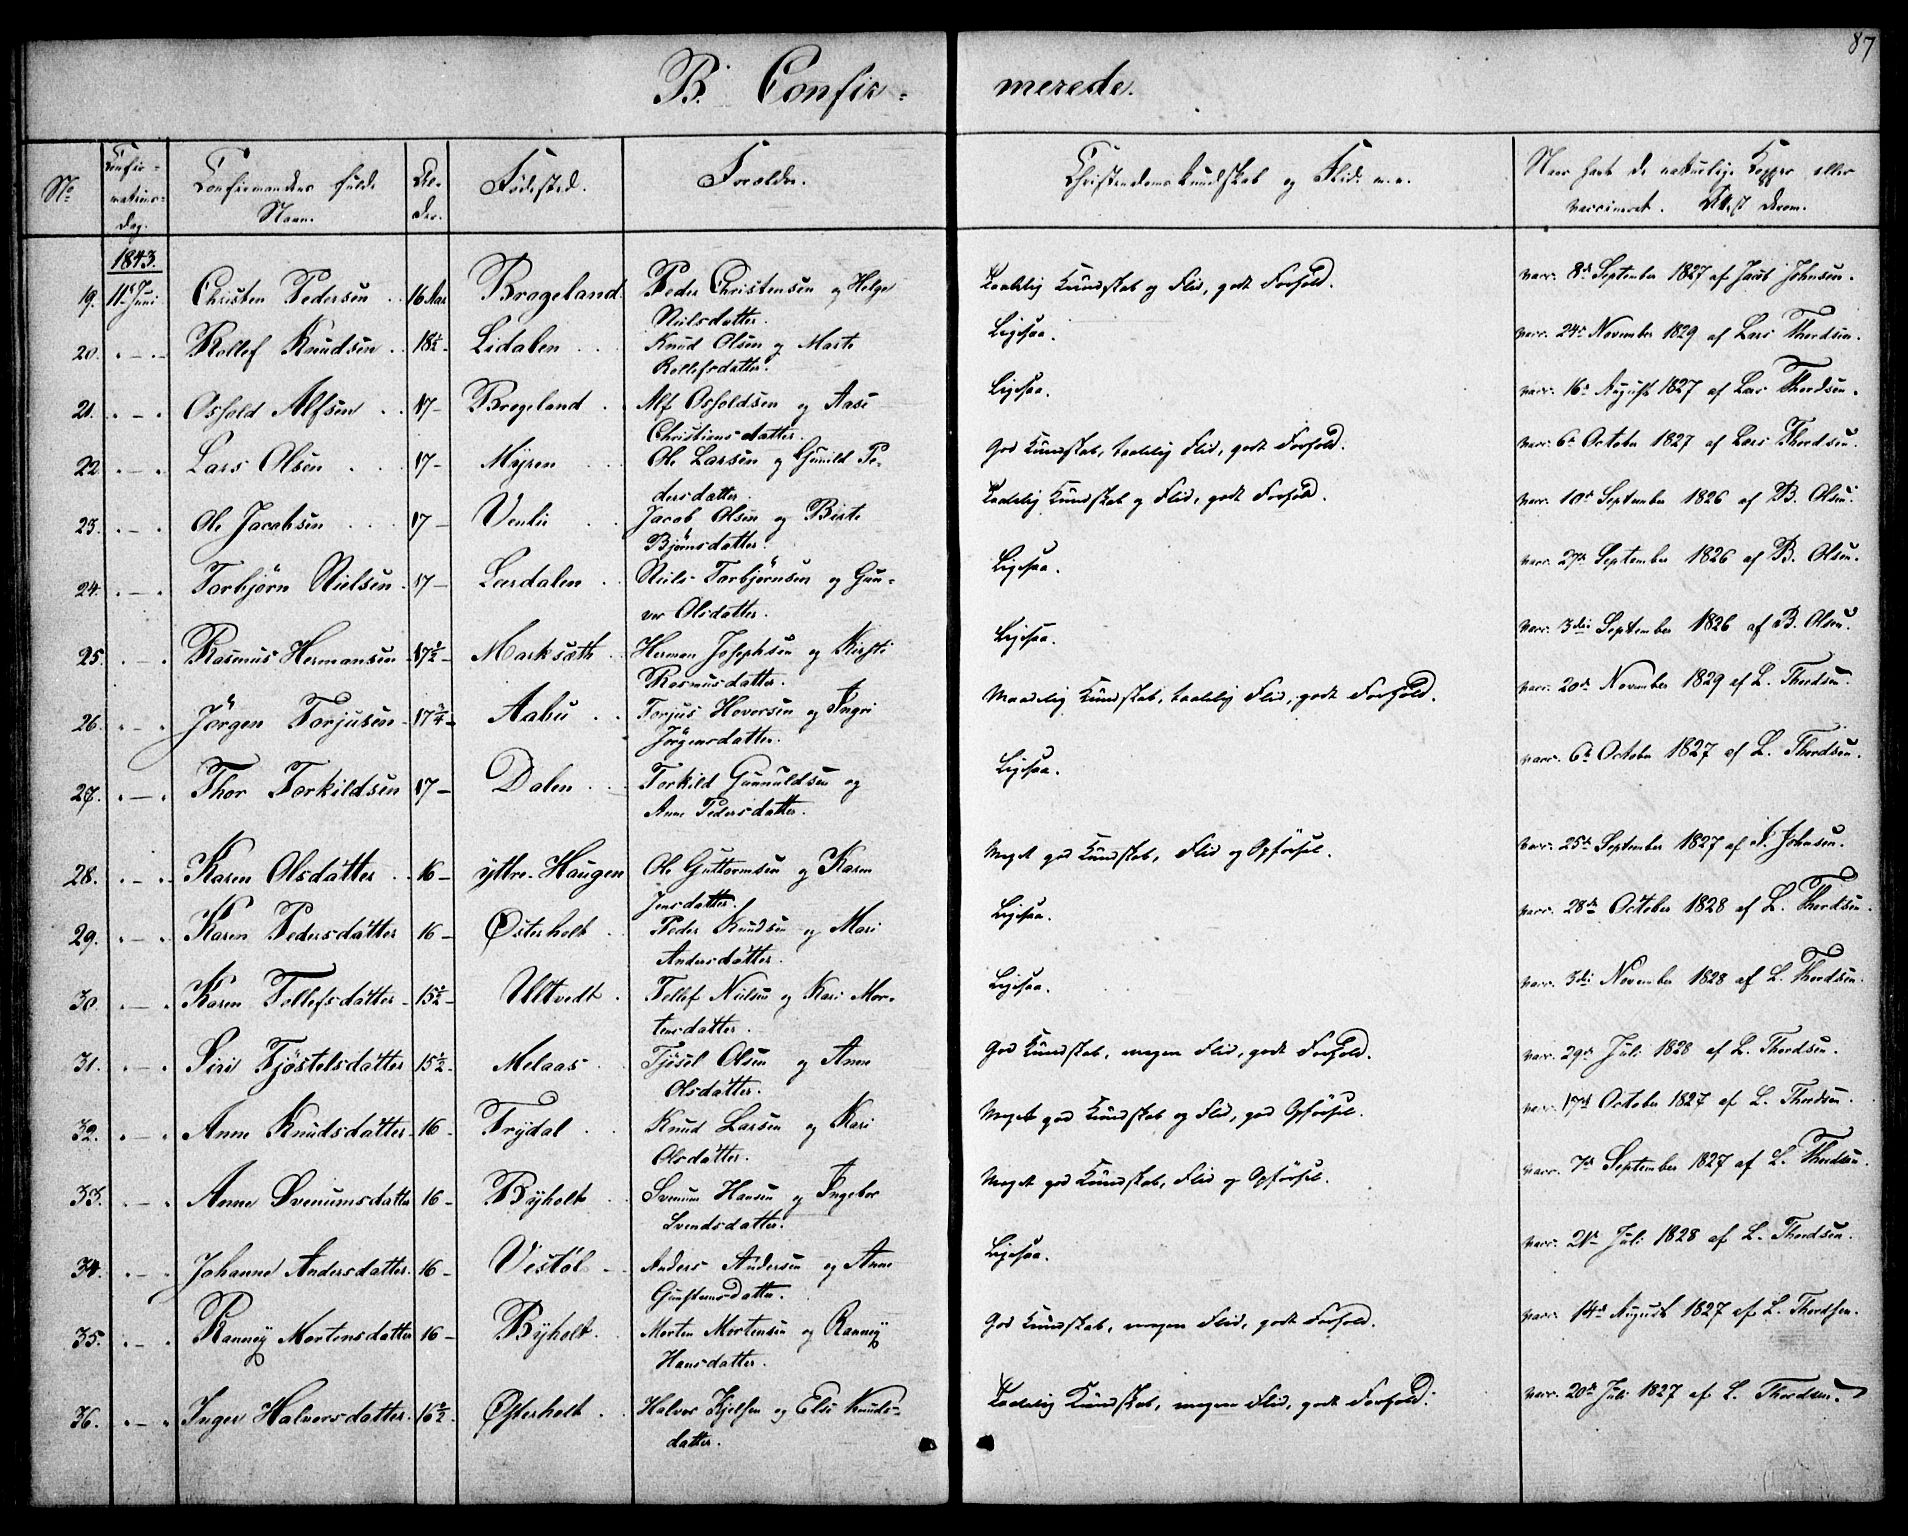 87
B. Confir- merede.
No Confirmations-Dag. Confirmandens fulde Navn. Alder. Fødested. Forældre. Christendoms Kundskab og Flid m.v. Naar havt de naturlige Kopper eller vaccineret. Attest derom.
1843.
19. 11te Juni Christen Pedersen 16 Aar Brageland Peder Christensen og Helge Nielsdatter. Taalelig Kundskab og Flid, godt Forhold. vacc. 8de September 1827 af Jacob Johnsen.
20. " — " Rollef Knudsen 18½ – Lidalen Knud Olsen og Marte Rollefsdatter. Ligesaa. vacc. 24de November 1829 af Lars Thordsen.
21. " — " Oshold Alfsen 17 – Brageland Alf Osholdsen og Aase Christiansdatter. Ligesaa. vacc. 16de August 1827 af Lars Thordsen.
22. " — " Lars Olsen 17 – Myren Ole Larsen og Gunild Pedersdatter. God Kundskab, taalelig Flid, godt Forhold. vacc. 6te October 1827 af Lars Thordsen.
23. " — " Ole Jacobsen 17 – Venlii Jacob Olsen og Birte Bjørnsdatter. Taalelig Kundskab og Flid, godt Forhold. vacc. 10de September 1826 af B. Olsen.
24. " — " Torbjørn Nielsen 17 – Lærdalen Niels Torbjørnsen og Gunvor Olsdatter. Ligesaa. vacc. 27de September 1826 af B. Olsen.
25. " — " Rasmus Hermansen 17½ – Marksæth Herman Josephsen og Kirsti Rasmusdatter. Ligesaa. vacc. 3die September 1826 af B. Olsen.
26. " — " Jörgen Torjusen 17¾ – Aabu Torjus Hoversen og Ingri Jörgensdatter. Maadelig Kundskab, taalelig Flid, godt Forhold. vacc. 20de November 1829 af L. Thordsen.
27. " — " Thor Torkildsen 17 – Dalen Torkild Gunnuldsen og Anne Pedersdatter. Ligesaa. vacc. 6te October 1827 af L. Thordsen.
28. " — " Karen Olsdatter 16 – yttre-Haugen Ole Guttormsen og Karen Jensdatter. Meget god Kundskab, Flid og Opförsel. vacc. 25de September 1827 af J. Johnsen.
29. " — " Karen Pedersdatter 16 – Østerholt Peder Knudsen og Mari Andersdatter. Ligesaa. vacc. 28de October 1828 af L. Thordsen.
30. " — " Karen Tellefsdatter 15½ – Ulltvedt Tellef Nielsen og Kari Mortensdatter. Ligesaa. vacc. 3die November 1828 af L. Thordsen.
31. " — " Siri Tjöstelsdatter 15½ – Melaas Tjösel Olsen og Anne Olsdatter. God Kundskab, megen Flid, godt Forhold. vacc. 29de Juli 1828 af L. Thordsen.
32. " — " Anne Knudsdatter 16 – Frydal Knud Larsen og Kari Olsdatter. Meget god Kundskab og Flid, god Opförsel. vacc. 17de October 1827 af L. Thordsen.
33. " — " Anne Svenumsdatter 16 – Byholt Svenum Hansen og Ingebor Svendsdatter. Meget god Kundskab, Flid og Opförsel. vacc. 7de September 1827 af L. Thordsen.
34. " — " Johanne Andersdatter 16 – Vestøl Anders Andersen og Anne Gunstensdatter. Ligesaa. vacc. 21de Juli 1828 af L. Thordsen.
35. " — " Ranney Mortensdatter 16 – Byholt Morten Mortensen og Ranney Hansdatter. God Kundskab, megen Flid, godt Forhold. vacc. 14de August 1827 af L. Thordsen.
36. " — " Inger Halvorsdatter 16½ – Østerholt Halvor Kjelsen og Else Knudsdatter. Taalelig Kundskab, megen Flid, godt Forhold. vacc. 20de Juli 1827 af L. Thordsen.